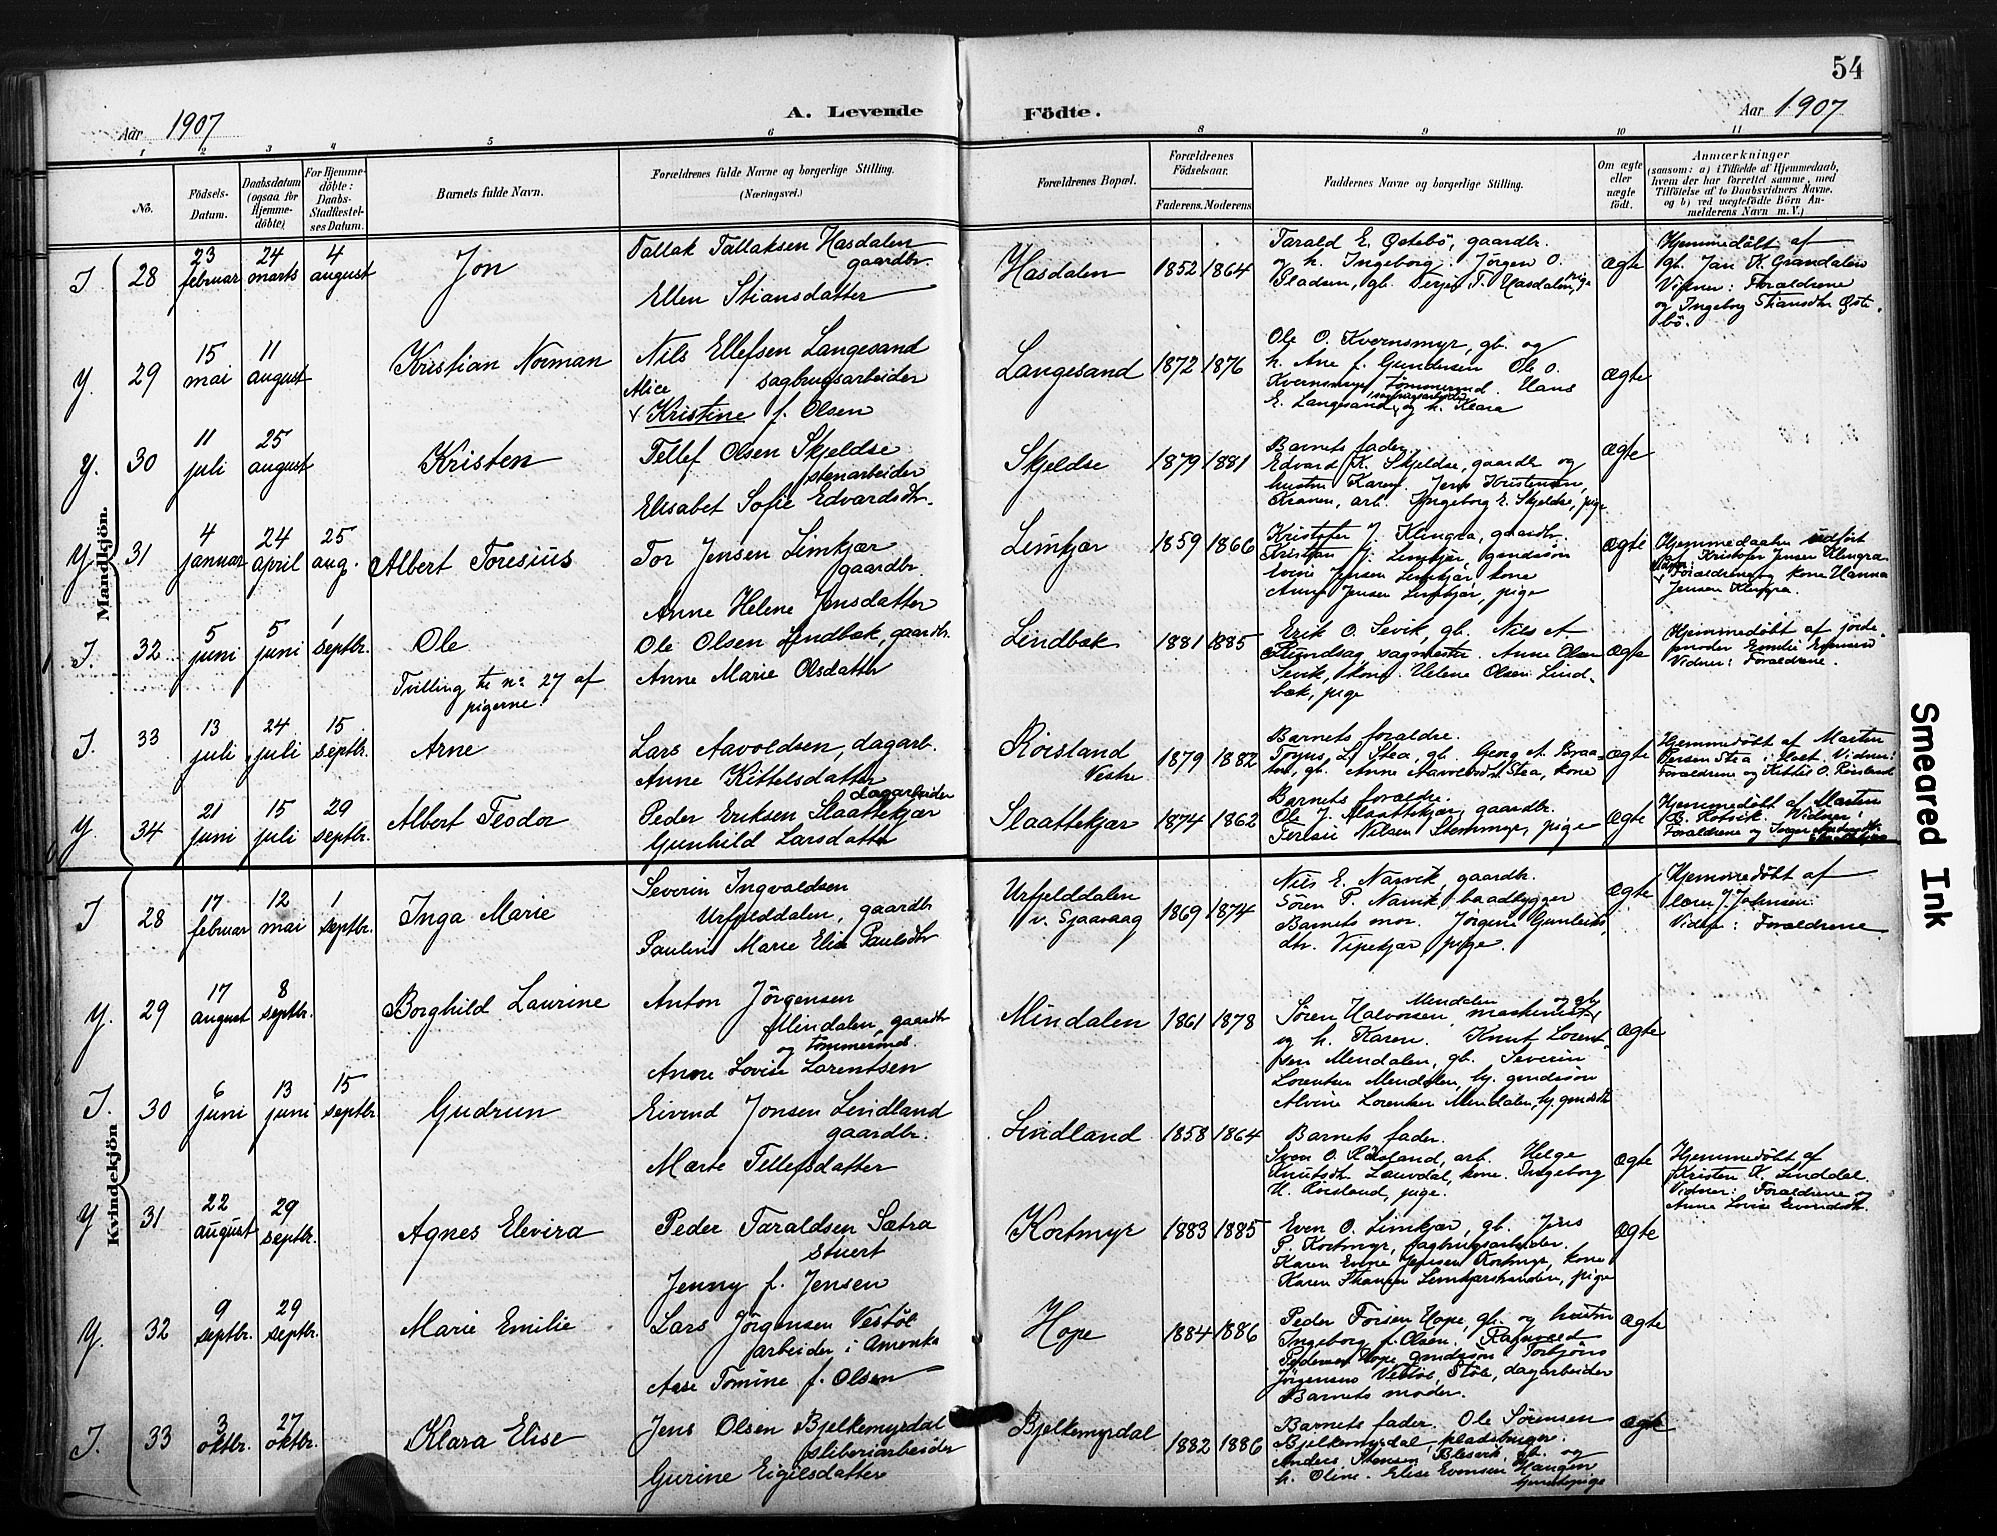 54
Aar 1907
A. Levende Födte.
Aar 1907
1 2 3 4 5 6 8 9 10 11
No.
Födsels-Datum.
Daabsdatum (ogsaa for Hjemme-döbte).
For Hjemme-döbte: Daabs-Stadfæstelses Datum.
Barnets fulde Navn.
Forældrenes fulde Navne og borgerlige Stilling.
(Næringsvei.)
Forældrenes Bopæl.
Forældrenes Födselsaar.
Faderens. Moderens.
Faddernes Navne og borgerlige Stilling.
Om ægte eller uægte födt.
Anmærkninger
(saasom: a) i Tilfælde af Hjemmedaab,
hvem der har forrettet samme, med
Tilföielse af to Daabsvidners Navne,
og b) ved uægtefödte Börn An-
melderens Navn m. V.)
Mandkjön.
I. 28 23 februar 24 marts 4 august Jon
Tallak Tallaksen Hasdalen
gaardbr.
Ellen Stiansdatter
Hasdalen 1852 1864
Tarald E. Östebö, gaardbr.
og h. Ingeborg. Jörgen O.
Pladsen, gb. Terje T. Hasdalen,
ægte
Hjemmedöbt af
gb. Jan K. Grændalen
Vidner: Forældrene
og Ingeborg Stiansdtr Öste-
bö.
Y. 29 15 mai 11 august Kristian Norman
Nils Ellefsen Langesand
sagbrugsarbeider
Alice
Kristine f. Olsen
Langesand 1872 1876
Ole O. Kvernsmyr, gb. og
h. Ane f. Gundersen Ole O.
Kvernsmyr, tømmermd. Hans
sagbrugsarbeider
E. Langesand, og h. Klara
ægte
Y. 30 11 juli 25 august Kristen
Tellef Olsen Skjeldse
stenarbeider
Elisabet Sofie Edvardsdtr.
Skjeldse 1879 1881
Barnets fader.
Edvard K. Skjeldse, gaardbr og
hustru Karen. Jens Kristensen,
Kranen, arb. Ingeborg E. Skjeldse, pige
ægte
Y. 31 4 januar 24 april 25 aug. Albert Toresius
Tor Jensen Limkjær
gaardbr
Anne Helene Jensdatter
Limkjær 1859 1866
Kristofer J. Klengra, gaardbr.
Kristian J. Limkjær, gaardssøn
Evine Jensen Limkjær, kone
Anna Jensen Limkjær, pige
ægte
Hjemmedaaben udfört
af Kristofer Jensen Klingra
Forældrene og kone Hanna
Jensen
I. 32 5 juni 5 juni 1 septbr. Ole
Tvilling til no 27 af
pigerne.
Ole Olsen Lindbæk, gaardbr.
Anne Marie Olsdatter
Lindbæk 1881 1885
Erik O. Sevik, gb. Nils A
sagmester. Anne Olsen
Sevik, kone. Helene Olsen Lind-
bæk, pige
ægte
Hjemmedöbt af jorde-
moder Emelie Evensen
Vidner: Forældrene.
I. 33 13 juli 24 juli 15 septbr. Arne
Lars Aavoldsen, dagarb.
Anne Kittelsdatter
Röisland
Vestre
1879 1882
Barnets forældre.
L. Stea, gb. Georg A. Braa-
ten, gb. Anne Stea, kone
ægte
Hjemmedöbt af Marten
Persen Stea i Holt. Vidner:
Forældrene og Kittil O. Röisland
Y. 34 21 juni 15 juli 29 septbr. Albert Teodor
dagarbeider
Peder Eriksen Slaattekjær
Gunhild Larsdatter
Slaattekjær 1874 1862
Barnets forældre.
Ole J. Slaattekjær, gaardbr.
Teresie Nilsen Stemmyr, pige
ægte
Hjemmedöbt af Martin
Vidner:
Forældrene og Inger
Kvindekjön
I 28 17 februar 12 mai 1 septbr. Inga Marie
Severin Ingvaldsen
Urfjelddalen, gaardbr
Pauline Marie Elise Paulsdtr
Urfjelddalen
v. Sjaavaag
1869 1874
Nils E. Narvik, gaardbr.
Sören P. Narvik, baadbygger
Barnets mor. Jörgine Gunleiks-
dtr. Vipekjær, pige.
ægte
Hjemmedöbt af
lærer J. Johnsen.
Vidner: Forældrene.
Y. 29 17 august 8 septbr. Borghild Laurine
Anton Jörgensen
Mindalen, gaardbr
og tømmermd.
Anne Lovise Larentsen
Mindalen 1861 1878
Mendalen og gb
Sören Halvorsen, maskinist
og h. Karen. Knut Lorent-
sen Mendalen, gb. Severin
Lorentsen Mendalen, hj. gaardssøn
Alvine Lorentsen Mendalen, hj. gaardsdtr
ægte
I. 30 6 juni 13 juni 15 septbr Gudrun
Eivind Jonsen Lindland
gaardbr.
Marte Tellefsdatter
Lindland 1858 1864
Barnets fader.
Sven O. Röisland, arb. Helge
Knutsdtr. Lauvdal, kone. Ingeborg
H. Röisland, pige.
ægte
Hjemmedöbt af
Kristen K. Linddal.
Vidner: Forældrene og
Anne Lovise Eivindsdtr.
Y 31 22 august 29 septbr. Agnes Elevira
Peder Taraldsen Sætra
stuert
Jenny f. Jensen
Kortmyr 1883 1885
Even O. Limkjær, gb. Jens
P. Kortmyr, sagbrugsarbeider.
Karen Evine Jensen Kortmyr, kone
Karen Limkjærstranden, pige
ægte
Y. 32 9 septbr. 29 septbr. Marie Emilie
Lars Jörgensen Vestöl
arbeider i Amerika
Aase Tomine f. Olsen
Hope 1884 1886
Peder Hope, gb. og hustru
Ingeborg f. Olsen. Ragnvald
Pedersen Hope, gaardssøn Torbjörns
Jörgensens Vestöl, Støle, dagarbeider
Barnets moder.
ægte
I. 33 3 oktbr. 27 oktbr. Klara Elise
Jens Olsen Bjelkemyrdal
sliberiarbeider
Gurine Eigilsdatter
Bjelkemyrdal 1882 1886
Barnets fader. Ole Sörensen
Bjelkemyrdal, pladsbruger.
Anders Stensen Blesvik, gb. og
h. Oline. Elise Evensen Haugen
ægte
Smeared Ink